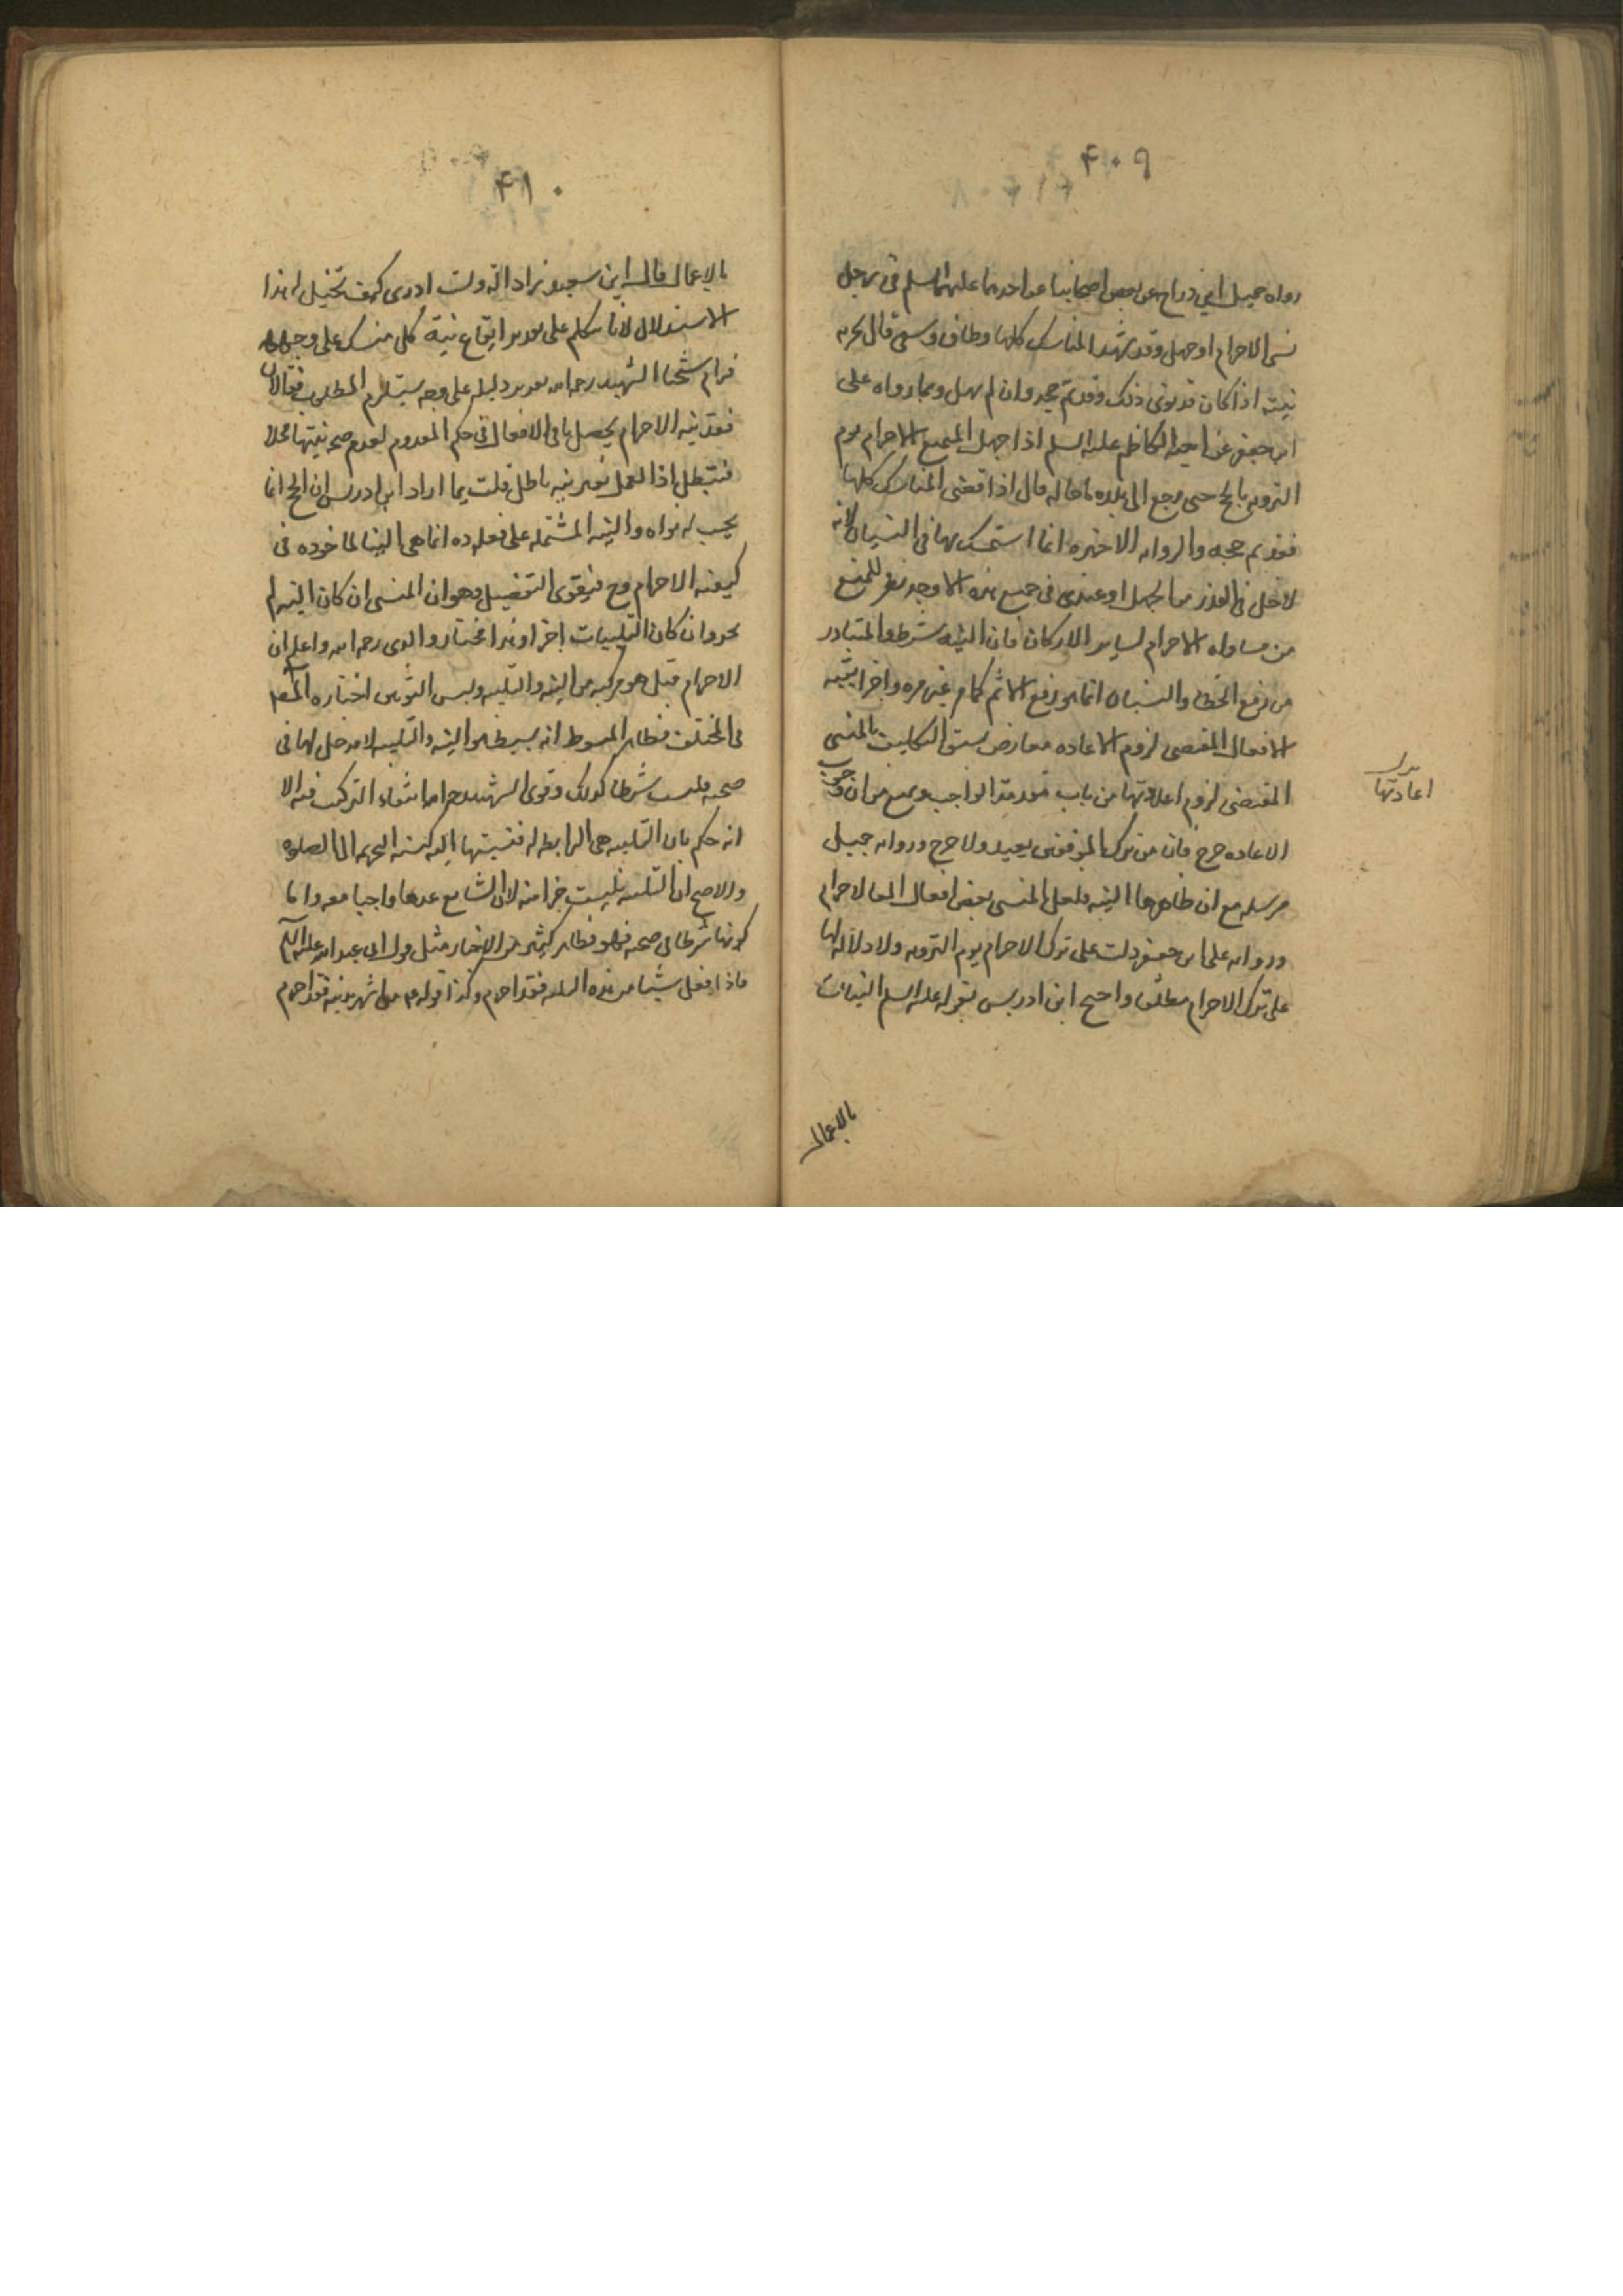 ۴۰۹
رواه جميل ابن دراج عن بعض اصحابنا عن احدهما عليهما السلم فى رجل
نسى الاحرام او جهل وقد شهد المناسك كلها وطاف وسعى قال يجزيه
نيته اذا كان قد نوى ذلك وقد تم حجه وان لم يهل وبما رواه على
ابن جعفر عن اخيه الكاظم عليه السلم اذا جهل المتمتع الاحرام يوم
الترويه بالحج حتى رجع الى بلده ما حاله قال اذا قضى المناسك كلها
فقد تم حجه والروايه الاخيره انما استمسك بها فى النسيان لانه
ادخل فى العذر من الجهل او عندى فى جميع هذه الاوجه نظر للمنع
من مساواه الاحرام لساير الاركان فان النيه شرط والمتبادر
من رفع الخطا والنسيان انما هو رفع الاثم كما مر غير مره واجزا بقيه
الافعال المقتضى لزوم الاعاده معارض بسبق التكليف بالمنسى
المقتضى لزوم اعادتها من باب مقدمة الواجب ويمنع من ان وجوب
الاعاده حرج فان من ترك الموقفين يعيد ولا حرج وروايه جميل
مرسله مع ان ظاهرها النيه فلعل المنسى بعض افعال الاحرام
وروايه على ابن جعفر دلت على ترك الاحرام يوم الترويه ولا دلاله لها
على ترك الاحرام مطلقا واحتج ابن ادريس بقوله عليه السلم النيات
اعادتها
بالاعمال
۴۱۰
بالاعمال قال ابن سعيد ولست ادرى كيف تخيل له هذا
الاستدلال لانا نتكلم على تقدير ايقاع نية كل منسك على وجهه
فرام شيخنا الشهيد رحمه الله تقرير دليله على وجه يستلزم المطلوب فقال ان
فقد نيه الاحرام يجعل باقى الافعال فى حكم المعدوم لعدم صحه نيتها محلا
فتبطل اذا العمل بغير نيه باطل قلت ربما اراد ابن ادريس ان الحج انما
يجب له نواه والنيه المشتمله على فعله ده انما هى النيه الماخوذه فى
كيفيه الاحرام وح فيقوى التفصيل وهو ان المنسى ان كان النيه لم
يجز وان كان التلبيات اجزا وهذا مختار والدى رحمه الله واعلم ان
الاحرام قيل هو مركب من النيه والتلبيه ولبس الثوبين اختاره المص
فى المختلف فظاهر المبسوط انه بسيط هو النيه والتلبيه لا مدخل لها فى
صحته وليست شرطا كذلك وقوى الشهيد انتفاء التركيب فيه الا
انه حكم بان التلبيه هى الرابطه له فنسبتها اليه كنسبه التحريمه الى الصلوه
والاصح ان التلبيه ليست جزا منه لان الشايع عدها واجبا معه واما
كونها شرطا فى صحته فهو فظاهر كثير من الاخبار مثل قول ابى عبد الله عليه السلم
فاذا فعل شيئا من هذه الثلثه فقد احرم وكذا قوله من اشعر بدنه فقد احرم